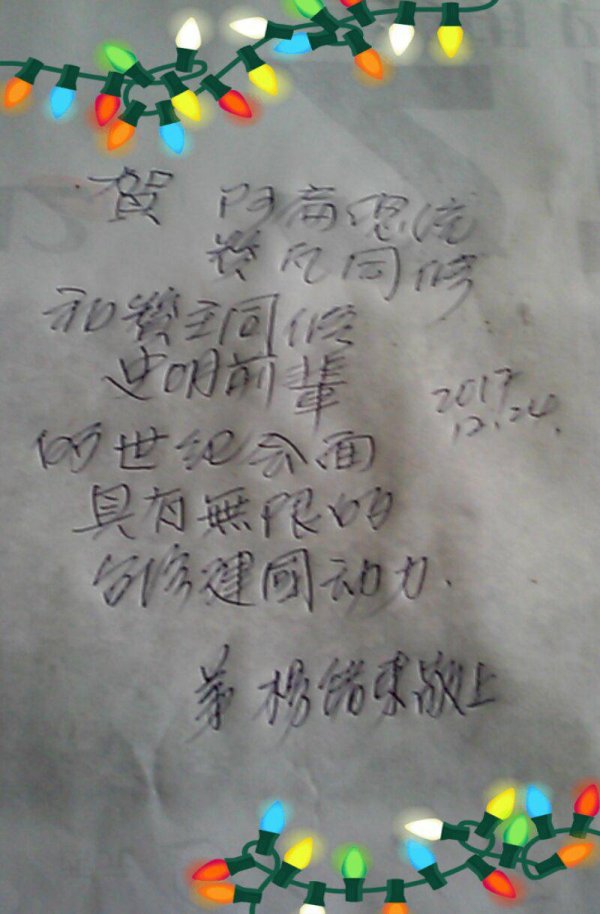 賀 阿扁總統
同修
和 主同修
史明前輩
2017
12.24.
的世紀会面
具有無限的
台湾建國动力.
弟 楊緒東敬上